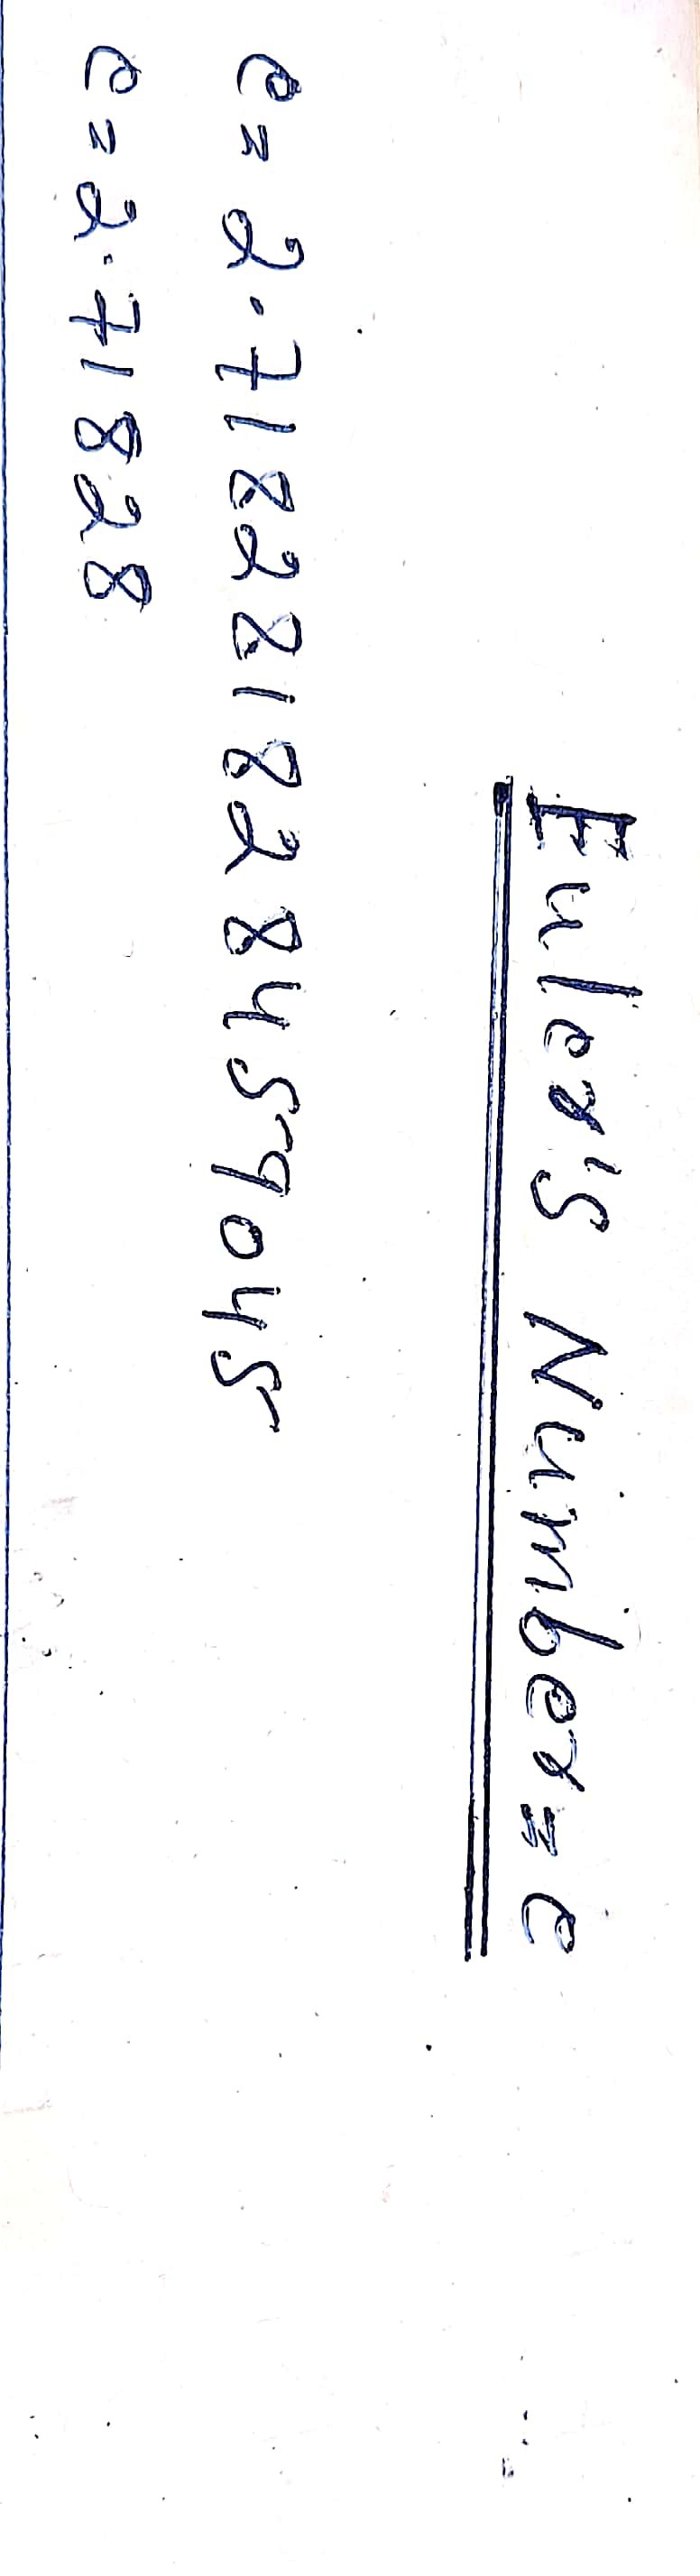 Euler's Number = e
e = 2.718281828459045
e = 2.71828